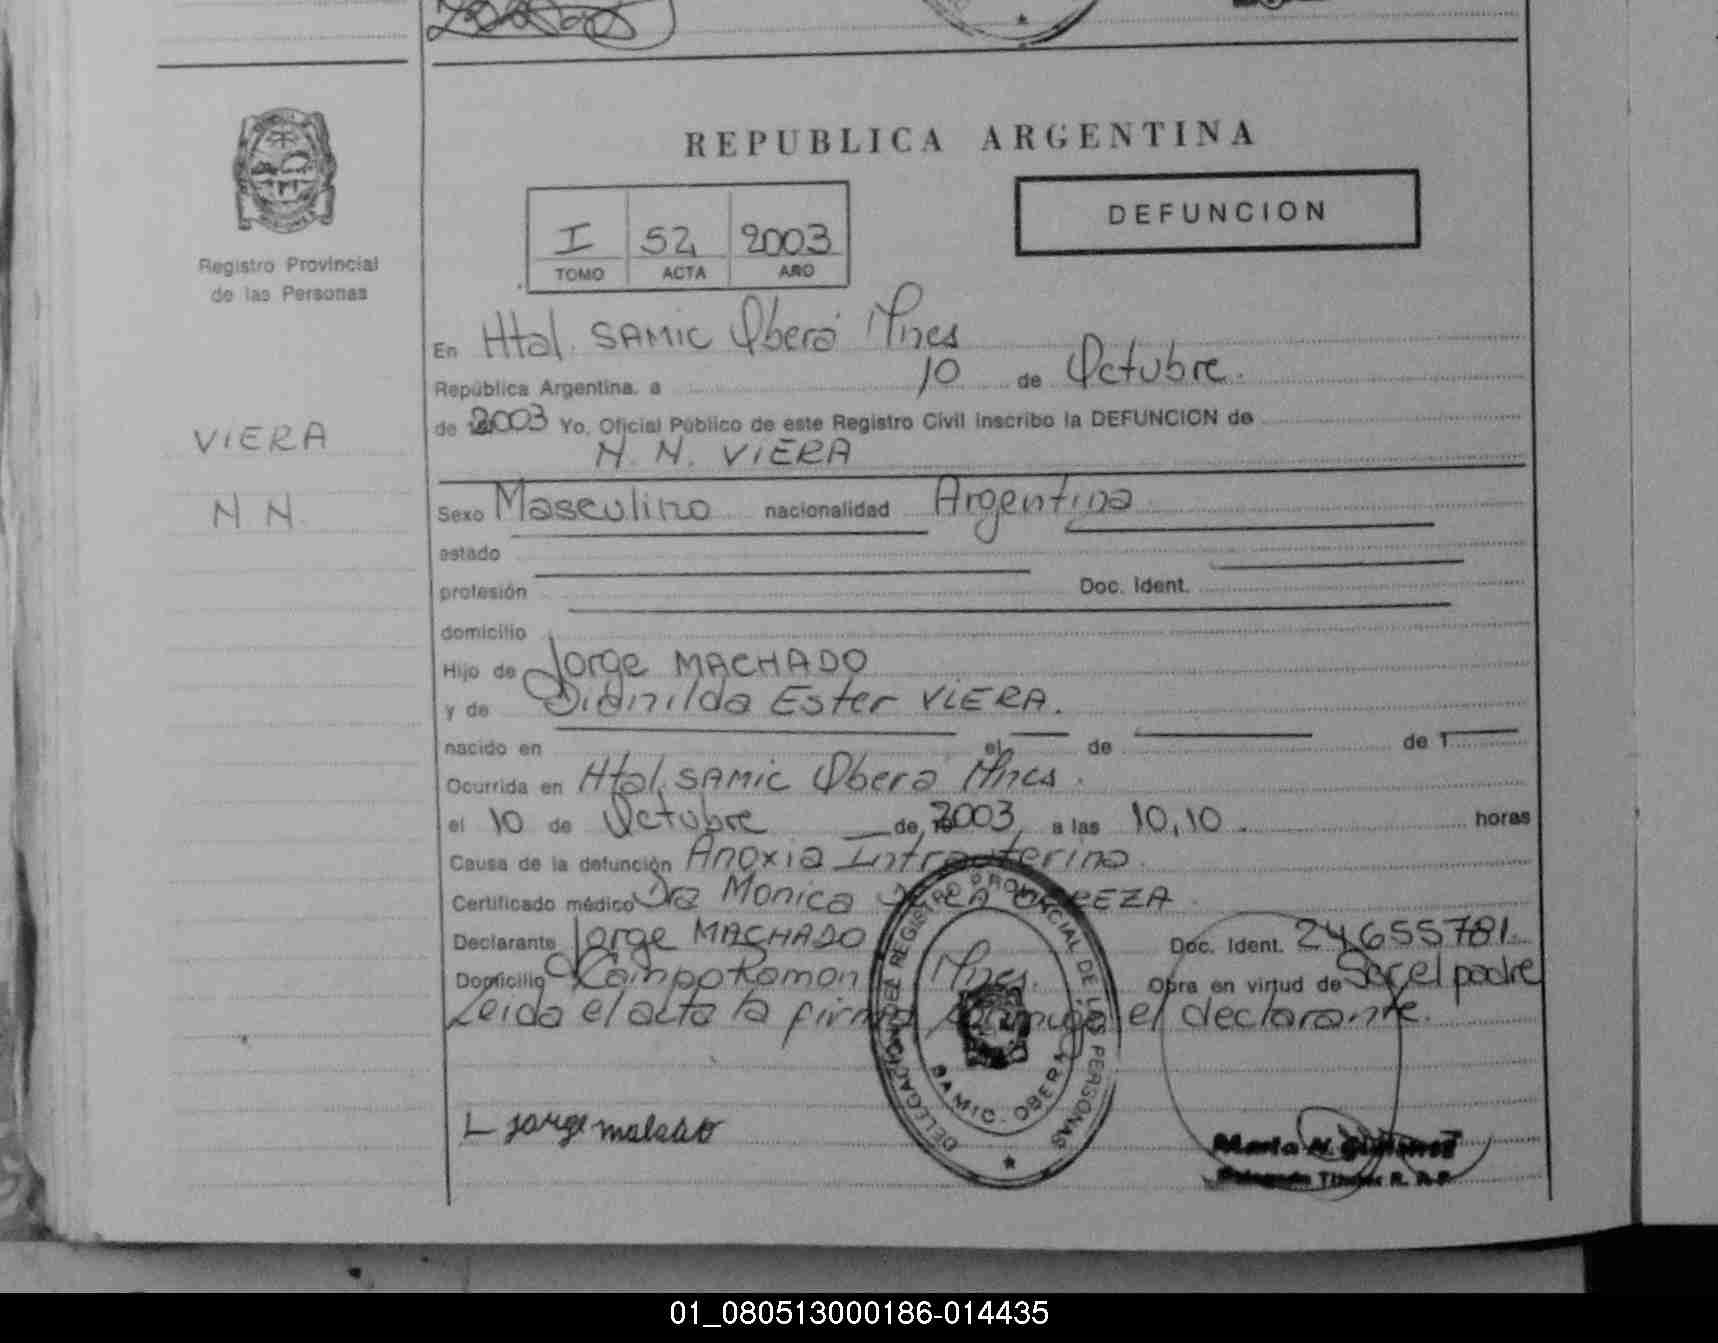 REPUBLICA ARGENTINA
DEFUNCION
I 52 2003
TOMO ACTA AÑO
Registro Provincial
de las Personas
VIERA
N N.
En Htal. SAMIC Oberá Mnes
República Argentina, a 10 de Octubre.
de 2003 Yo, Oficial Público de este Registro Civil inscribo la DEFUNCION de
N. N. VIERA
Sexo Masculino nacionalidad Argentina
estado
profesión Doc. Ident.
domicilio
Hijo de Jorge MACHADO
y de Dianilda Ester VIERA.
nacido en el de de 1
Ocurrida en Htal. SAMIC Oberá Mnes.
el 10 de Octubre de 2003 a las 10,10. horas
Causa de la defunción Anoxia Intrauterina.
Certificado médico Dra Monica
Declarante Jorge MACHADO Doc. Ident. 24655781.
Domicilio Campo Ramon Mnes. Obra en virtud de Ser el padre
Leida el acta la firma el declarante.
DELEGACION DEL REGISTRO PROVINCIAL DE LAS PERSONAS
SAMIC. OBERA
01_080513000186-014435